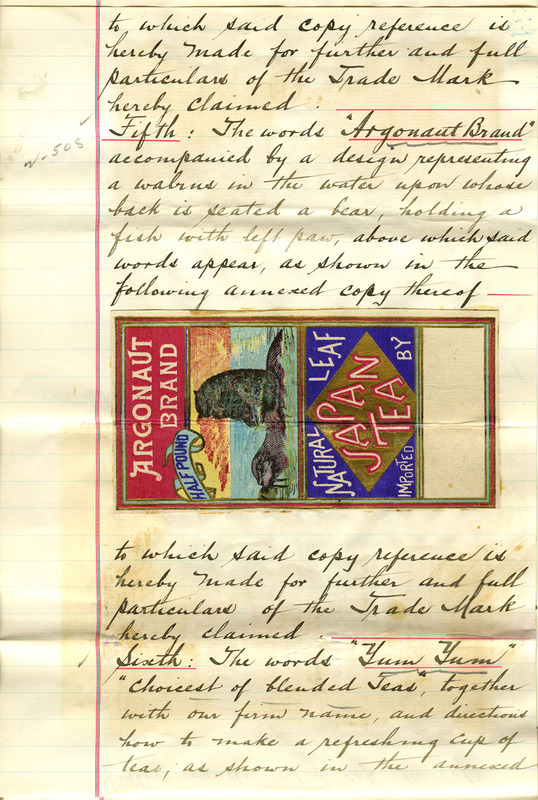 to which said copy reference is
hereby made for further and full
particulars of the Trade Mark
hereby claimed.
Fifth: The words "Argonaut Brand"
accompanied by a design representing
a walrus in the water upon whose
back is seated a bear, holding a
fish with left paw, above which said
words appear, as shown in the
following annexed copy thereof
ARGONAUT
BRAND
HALF POUND
NATURAL LEAF
JAPAN
TEA
IMPORTED BY
to which said copy reference is
hereby made for further and full
particulars of the Trade Mark
hereby claimed.
Sixth: The words "Yum Yum"
"Choicest of blended Teas", together
with our firm name, and directions
how to make a refreshing cup of
teas, as shown in the annexed